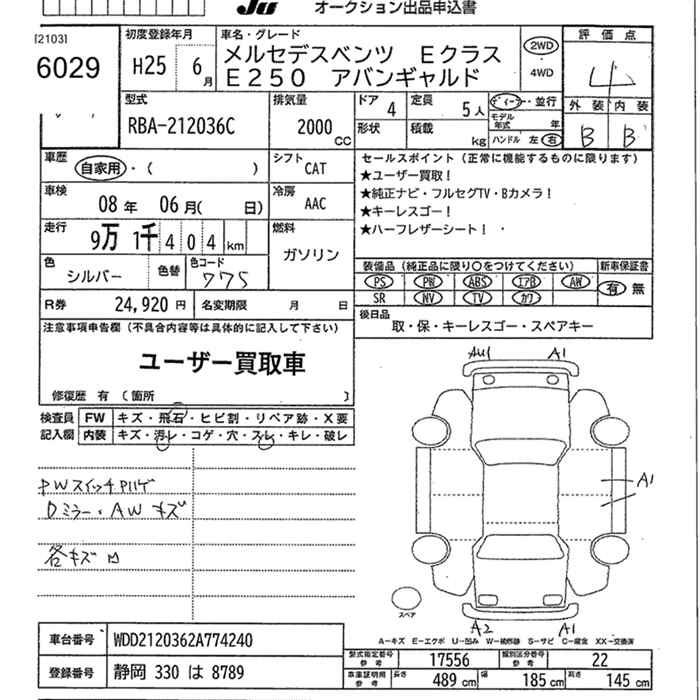 JU オークション出品申込書
[2103]
6029
初度登録年月
H25 6月
車名・グレード
メルセデスベンツ Eクラス
E250 アバンギャルド
2WD
4WD
評価点
4
外装 内装
B B
型式
RBA-212036C
排気量
2000cc
ドア 4
定員 5人
形状
積載 kg
ディーラー・並行
モデル年式 年
ハンドル 左 右
車歴
自家用・( )
シフト
CAT
車検
08年 06月( 日)
冷房
AAC
走行
9万 1千 4 0 4 km
燃料
ガソリン
色
シルバー
色替
色コード
775
R券 24,920円
名変期限 月 日
セールスポイント(正常に機能するものに限ります)
★ユーザー買取!
★純正ナビ・フルセグTV・Bカメラ!
★キーレスゴー!
★ハーフレザーシート!
装備品(純正品に限り○をつけてください)
新車保証書
PS PW ABS エアB AW
SR NV TV カワ
有 無
後日品
取・保・キーレスゴー・スペアキー
注意事項申告欄(不具合内容等は具体的に記入して下さい)
ユーザー買取車
修復歴 有(箇所 )
検査員記入欄
FW キズ・飛石・ヒビ割・リペア跡・X要
内装 キズ・汚レ・コゲ・穴・スレ・キレ・破レ
PWスイッチハゲ
Dミラー・AWキズ
各キズ
AU1 A1
A1
A2 A1
スペア
A-キズ E-エクボ U-凹み W-補修跡 S-サビ C-腐食 XX-交換済
車台番号 WDD2120362A774240
登録番号 静岡 330 は 8789
型式指定番号 参考 17556
類別区分番号 参考 22
車庫証明用 参考
長さ 489cm
幅 185cm
高さ 145cm